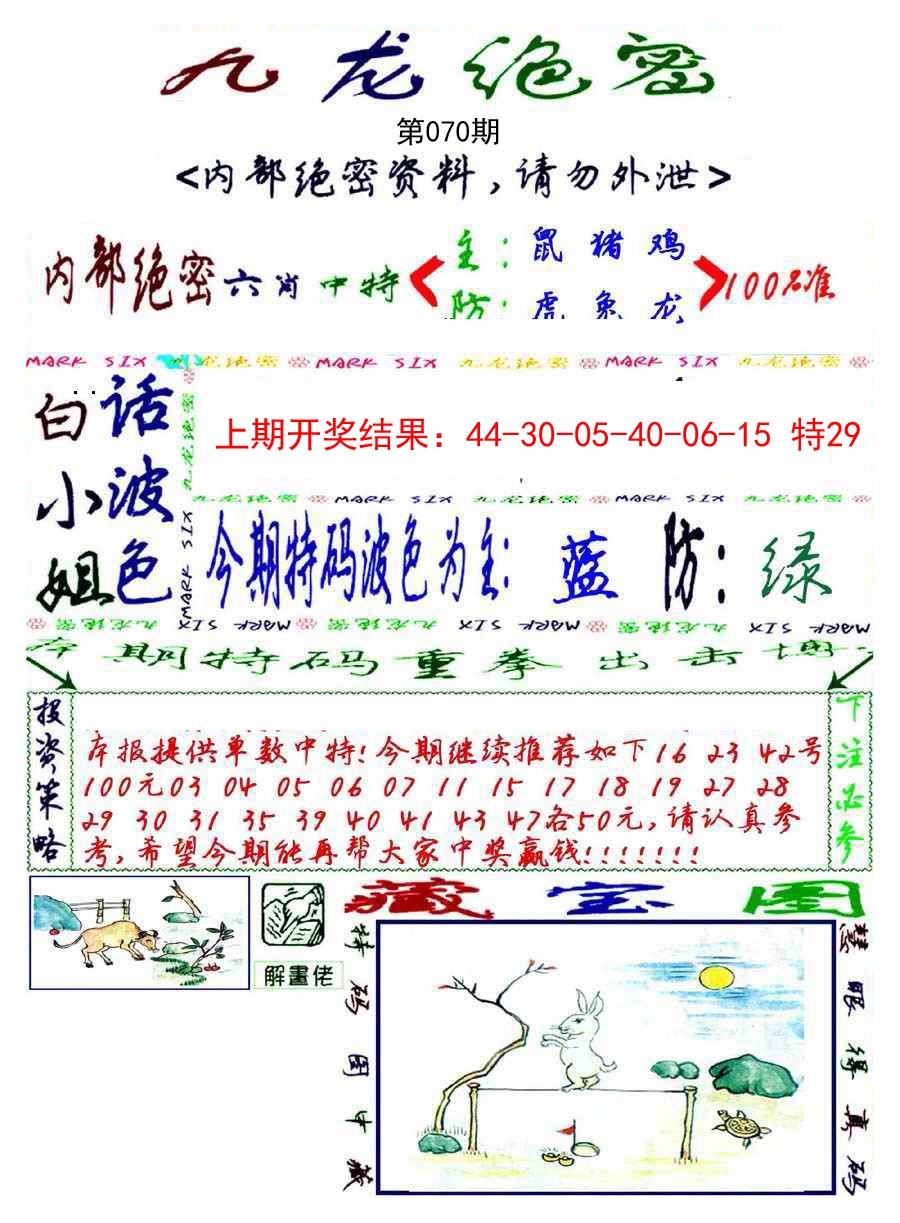 九龙绝密
第070期
<内部绝密资料,请勿外泄>
内部绝密六肖中特
主:鼠猪鸡
防:虎兔龙
100%准
MARK SIX 九龙绝密 MARK SIX 九龙绝密 MARK SIX 九龙绝密
白小姐
话波色
九龙绝密
MARK SIX
上期开奖结果：44-30-05-40-06-15 特29
九龙绝密 MARK SIX 九龙绝密 MARK SIX 九龙绝密
今期特码波色为主: 蓝 防: 绿
九龙绝密 MARK SIX 九龙绝密 MARK SIX 九龙绝密 MARK SIX
本期特码重拳出击博
投资策略
本报提供单数中特!今期继续推荐如下16 23 42号
100元03 04 05 06 07 11 15 17 18 19 27 28
29 30 31 35 39 40 41 43 47各50元,请认真参
考,希望今期能再帮大家中奖赢钱!!!!!!!
下注必参
藏宝图
解畫佬
特码图中藏
慧眼得真码